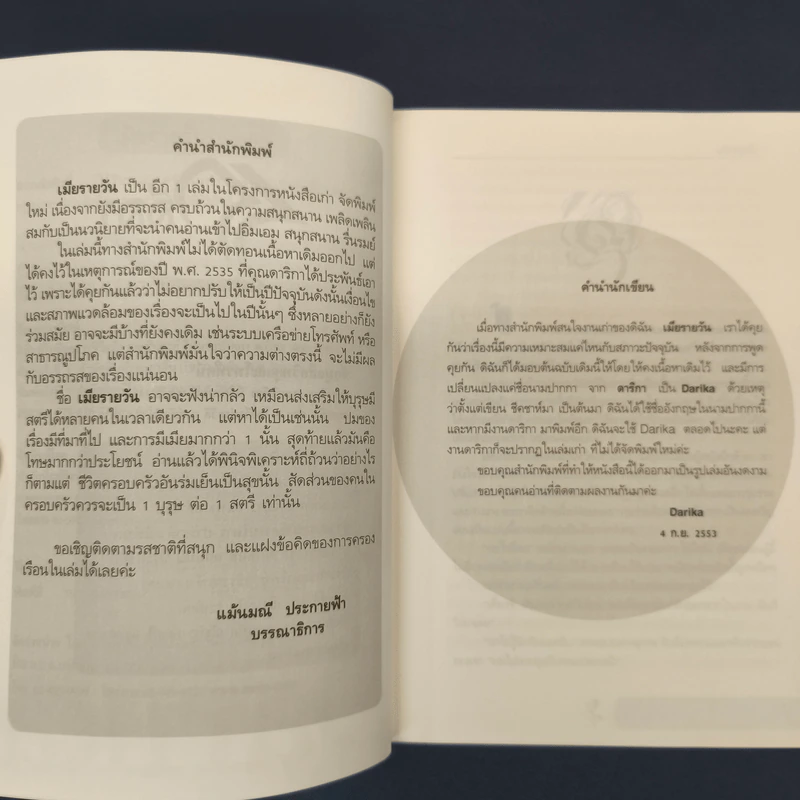 คำนำสำนักพิมพ์
เมียรายวัน เป็น อีก 1 เล่มในโครงการหนังสือเก่า จัดพิมพ์
ใหม่ เนื่องจากยังมีอรรถรส ครบถ้วนในความสนุกสนาน เพลิดเพลิน
สมกับเป็นนวนิยายที่จะนำคนอ่านเข้าไปอิ่มเอม สนุกสนาน รื่นรมย์
ในเล่มนี้ทางสำนักพิมพ์ไม่ได้ตัดทอนเนื้อหาเดิมออกไป แต่
ได้คงไว้ในเหตุการณ์ของปี พ.ศ. 2535 ที่คุณดาริกาได้ประพันธ์เอา
ไว้ เพราะได้คุยกันแล้วว่าไม่อยากปรับให้เป็นปีปัจจุบันดังนั้นเงื่อนไข
และสภาพแวดล้อมของเรื่องจะเป็นไปในปีนั้นๆ ซึ่งหลายอย่างก็ยัง
ร่วมสมัย อาจจะมีบ้างที่ยังคงเดิม เช่นระบบเครือข่ายโทรศัพท์ หรือ
สาธารณูปโภค แต่สำนักพิมพ์มั่นใจว่าความต่างตรงนี้ จะไม่มีผล
กับอรรถรสของเรื่องแน่นอน
ชื่อ เมียรายวัน อาจจะฟังน่ากลัว เหมือนส่งเสริมให้บุรุษมี
สตรีได้หลายคนในเวลาเดียวกัน แต่หาได้เป็นเช่นนั้น ปมของ
เรื่องมีที่มาที่ไป และการมีเมียมากกว่า 1 นั้น สุดท้ายแล้วมันคือ
โทษมากกว่าประโยชน์ อ่านแล้วได้พินิจพิเคราะห์ถี่ถ้วนว่าอย่างไร
ก็ตามแต่ ชีวิตครอบครัวอันร่มเย็นเป็นสุขนั้น สัดส่วนของคนใน
ครอบครัวควรจะเป็น 1 บุรุษ ต่อ 1 สตรี เท่านั้น
ขอเชิญติดตามรสชาติที่สนุก และแฝงข้อคิดของการครอง
เรือนในเล่มได้เลยค่ะ
แม้นมณี ประกายฟ้า
บรรณาธิการ
คำนำนักเขียน
เมื่อทางสำนักพิมพ์สนใจงานเก่าของดิฉัน เมียรายวัน เราได้คุย
กันว่าเรื่องนี้มีความเหมาะสมแค่ไหนกับสภาวะปัจจุบัน หลังจากการพูด
คุยกัน ดิฉันก็ได้มอบต้นฉบับเดิมนี้ให้โดยให้คงเนื้อหาเดิมไว้ และมีการ
เปลี่ยนแปลงแค่ชื่อนามปากกา จาก ดาริกา เป็น Darika ด้วยเหตุ
ว่าตั้งแต่เขียน ชีคซาห์มา เป็นต้นมา ดิฉันได้ใช้ชื่ออังกฤษในนามปากกานี้
และหากมีงานดาริกา มาพิมพ์อีก ดิฉันจะใช้ Darika ตลอดไปนะคะ แต่
งานดาริกาก็จะปรากฏในเล่มเก่า ที่ไม่ได้จัดพิมพ์ใหม่ค่ะ
ขอบคุณสำนักพิมพ์ที่ทำให้หนังสือนี้ได้ออกมาเป็นรูปเล่มอันงดงาม
ขอบคุณคนอ่านที่ติดตามผลงานกันมาค่ะ
Darika
4 ก.ย. 2553